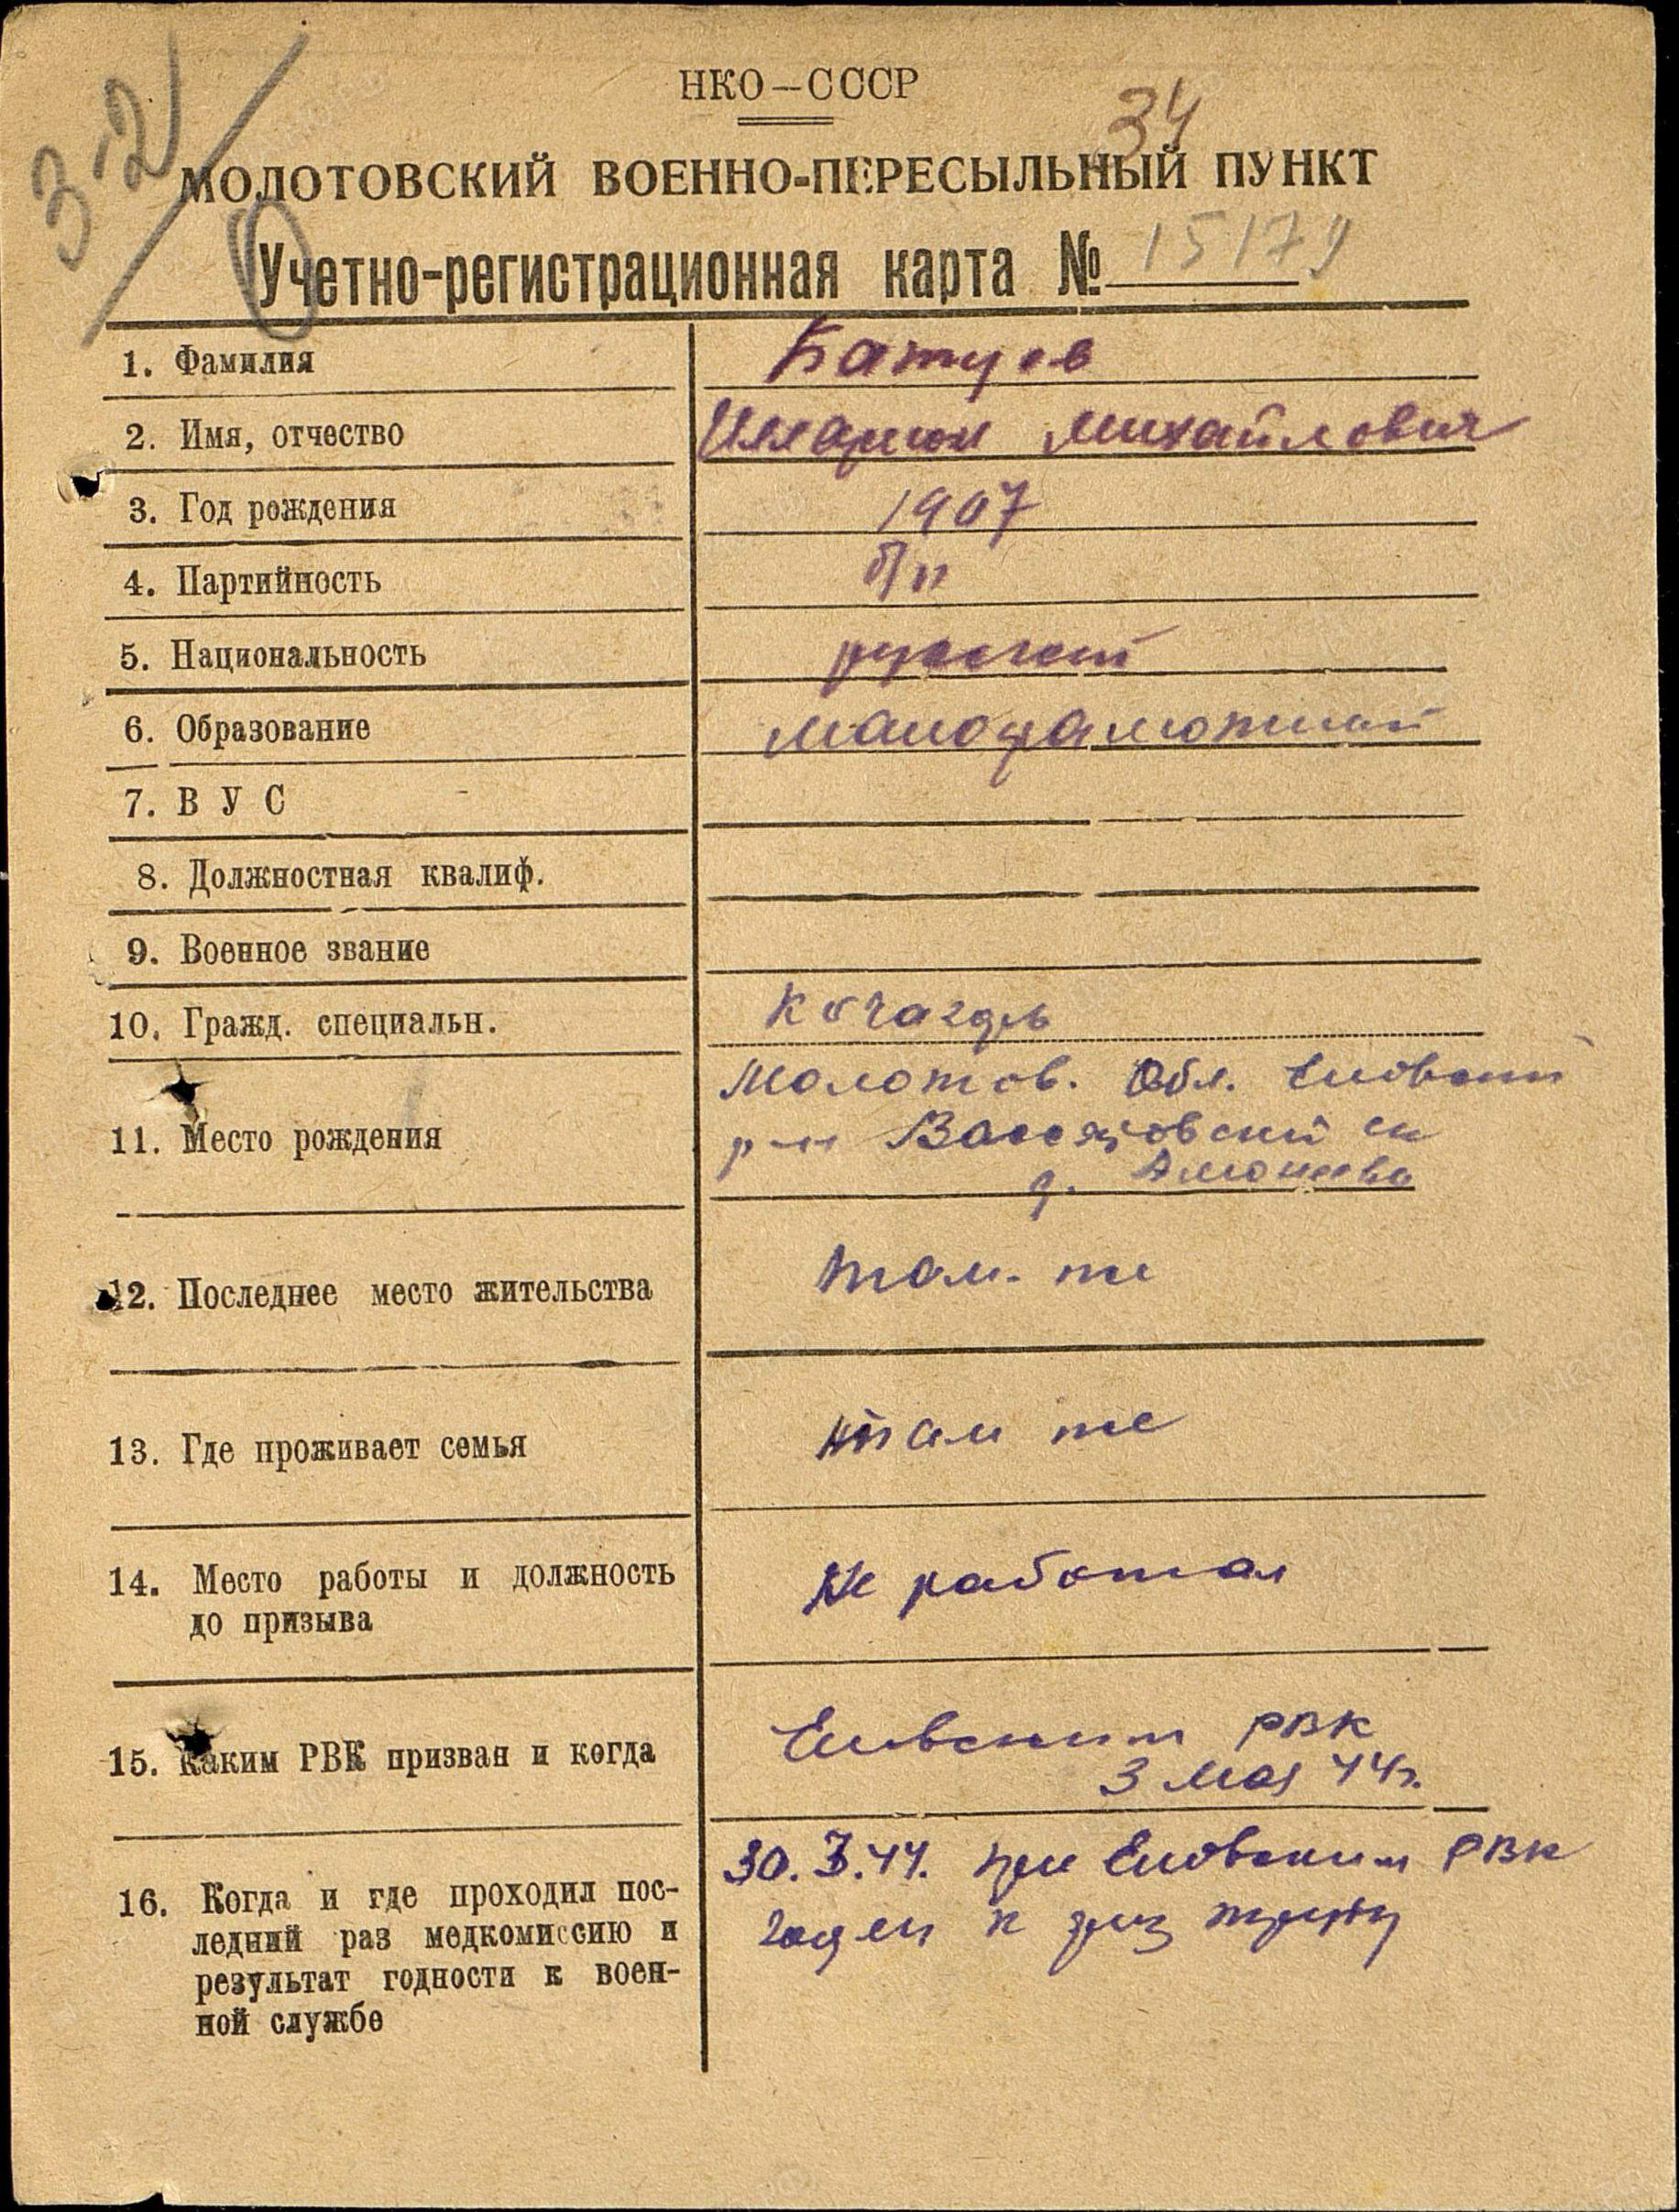 3-2/0
НКО–СССР
34
МОЛОТОВСКИЙ ВОЕННО-ПЕРЕСЫЛЬНЫЙ ПУНКТ
Учетно-регистрационная карта № 15179
1. Фамилия Батуев
2. Имя, отчество Илларион Михайлович
3. Год рождения 1907
4. Партийность б/п
5. Национальность русский
6. Образование малограмотный
7. В У С
8. Должностная квалиф.
9. Военное звание
10. Гражд. специальн. Кочагарь
Молотов. Обл. Еловский
11. Место рождения р-н Вассятовский с/с
д.
12. Последнее место жительства там-же
13. Где проживает семья там же
14. Место работы и должность Не работал
до призыва
Еловским РВК
15. Каким РВК призван и когда 3 мая 44г.
30.3.44. при Еловским РВК
16. Когда и где проходил пос- годен к физ труду
ледний раз медкомиссию и
результат годности к воен-
ной службе